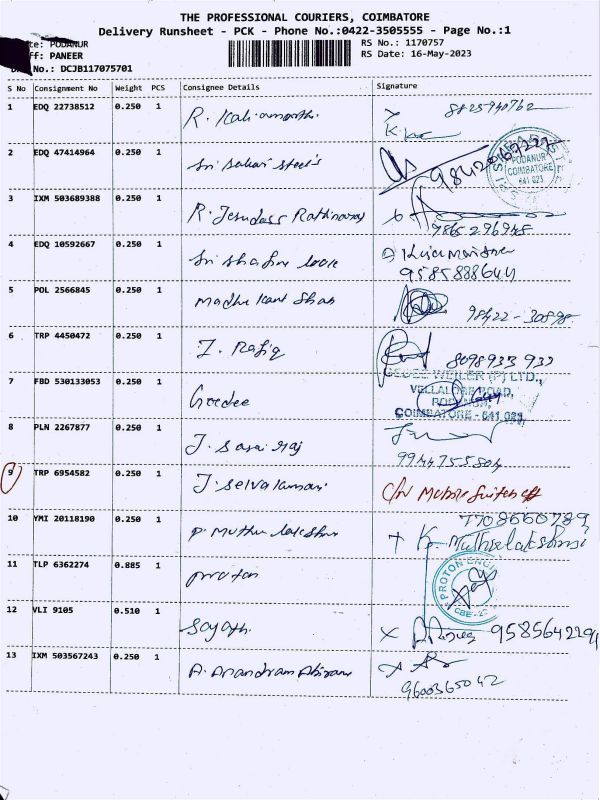 THE PROFESSIONAL COURIERS, COIMBATORE
Delivery Runsheet - PCK - Phone No.:0422-3505555 - Page No.:1
te: PODANUR
RS No.: 1170757
ff: PANEER
RS Date: 16-May-2023
No.: DCJB117075701
S No Consignment No Weight PCS Consignee Details Signature
1 EDQ 22738512 0.250 1 R. 8825940762
2 EDQ 47414964 0.250 1 Sri steel's
PODANUR
COIMBATORE
641 023
3 IXM 503689388 0.250 1 R. Jesudass Rathinaraj
9865296948
4 EDQ 10592667 0.250 1 Sri
9585888644
5 POL 2566845 0.250 1 Madhu Kant Shah
98422-30898
6 TRP 4450472 0.250 1 J. Rafiq 8098933 933
7 FBD 530133053 0.250 1 Geedee
GEDEE WEILER (P) LTD.,
VELLALORE ROAD,
PODANUR,
COIMBATORE - 641 023
8 PLN 2267877 0.250 1 J.
9944755804
9 TRP 6954582 0.250 1 J. Selvakumari C/N Mobile Switch off
10 YMI 20118190 0.250 1 P. Muthu lakshmi
7708660789
K. Muthulakshmi
11 TLP 6362274 0.885 1 Proton
PROTON ENGI
CBE-2
12 VLI 9105 0.510 1
9585642291
13 IXM 503567243 0.250 1 A. Anandram
9600365042